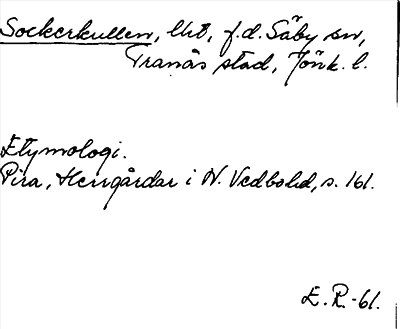 Sockerkullen, lht, f.d. Säby sn,
Tranås stad, Jönk. l.
Etymologi.
Pira, Herrgårdar i N. Vedbohd, s. 161.
E. R. -61.